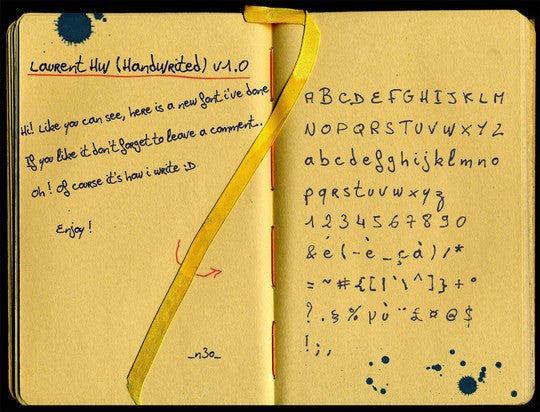 Laurent HW (Handwrited) v1.0
Hi! Like you can see, here is a new font i've done
If you like it don't forget to leave a comment..
Oh! Of course it's how i write :D
Enjoy!
_n3o_
A B C D E F G H I J K L M
N O P Q R S T U V W X Y Z
a b c d e f g h i j k l m n o
p q r s t u v w x y z
1 2 3 4 5 6 7 8 9 0
& é ( - è _ ç à ) / *
= ~ # { [ | ` \ ^ ] } + °
? . § % µ ù ¨ £ ¤ @ $
! ; ,